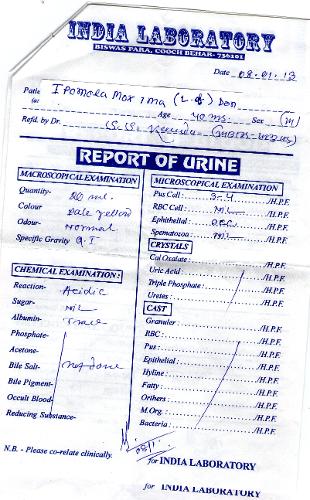 INDIA LABORATORY
BISWAS PARA, COOCH BEHAR-736101
Date 08.01.13
Ipomoea Maxima (L.f) Don
Age Sex (M)
Refd. by Dr.
REPORT OF URINE
MACROSCOPICAL EXAMINATION
Quantity- 20 ml.
Colour Pale yellow
Odour- Normal
Specific Gravity Q.I
CHEMICAL EXAMINATION :
Reaction- Acidic
Sugar- Nil
Albumin- Trace
Phosphate-
Acetone-
Bile Salt- not done
Bile Pigment-
Occult Blood-
Reducing Substance-
MICROSCOPICAL EXAMINATION
Pus Cell : 3-4 /H.P.F.
RBC Cell : Nil /H.P.F.
Ephithelial : /H.P.F.
Spematozoa : Nil /H.P.F.
CRYSTALS
Cal Oxalate : /H.P.F.
Uric Acid : /H.P.F.
Triple Phosphate : /H.P.F.
Uretes : /H.P.F.
CAST
Granuler : /H.P.F.
RBC : /H.P.F.
Pus : /H.P.F.
Epithelial : /H.P.F.
Hyline : /H.P.F.
Fatty : /H.P.F.
Orthers : /H.P.F.
M.Org. : /H.P.F.
Bacteria : /H.P.F.
N.B. - Please co-relate clinically.
for INDIA LABORATORY
for INDIA LABORATORY